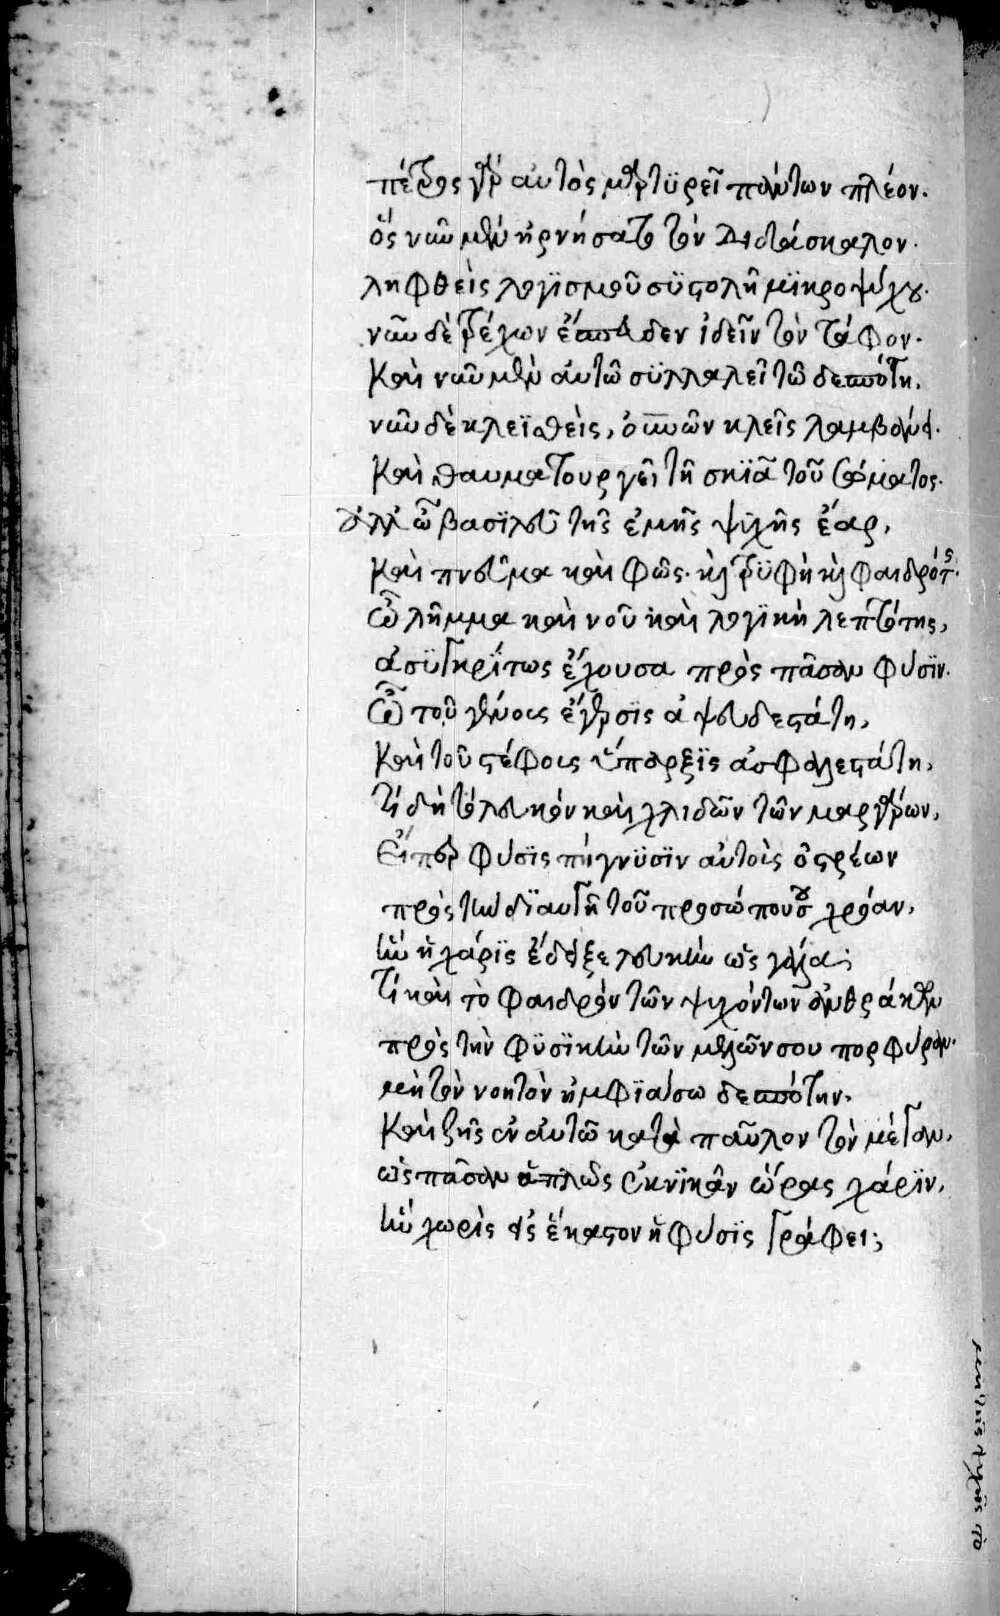 πέτρος γὰρ αὐτὸς μαρτϋρεῖ πάντων πλέον.
ὃς νῦν μὲν ἠρνήσατο τὸν διδάσκαλον.
ληφθεὶς λογϊσμοῦ σϋστολῆ μϊκροψύχου.
νῦν δὲ τρέχων ἔσπευδεν ἰδεῖν τὸν τάφον.
Καὶ νῦν μὲν αὐτῶ σϋλλαλεῖ τῶ δεσπότη.
νῦν δὲ κλεϊσθεὶς, οὐνῶν κλεῖς λαμβάνει.
Καὶ θαυματουργεῖ τῆ σκϊᾶ τοῦ σώματος.
ἀλλ' ὦ βασϊλεῦ τῆς ἐμῆς ψυχῆς ἔαρ,
Καὶ πνεῦμα καὶ φῶς. καὶ τρϋφὴ καὶ φαιδρότης.
ὦ λῆμμα καὶ νοῦ καὶ λογϊκὴ λεπτότης,
ἀσϋγκρΐτως ἔχουσα πρὸς πᾶσαν φύσϊν.
Ὦ τοῦ γένους ἔγερσϊς ἀψευδεστάτη,
Καὶ τοῦ στέφους ὕπαρξϊς ἀσφαλεστάτη,
Τί δὴ τὸ λευκὸν καὶ χλιδῶν τῶν μαργάρων,
Εἴπερ φύσϊς πήγνϋσϊν αὐτοὺς ὀστρέων
πρὸς τὴν δϊαυγῆ τοῦ προσώπου σου χρόαν,
ἣν ἡ χάρϊς ἔδειξε λευκὴν ὡς γάλα;
Τί καὶ τὸ φαιδρὸν τῶν ψυχόντων ἀνθράκων
πρὸς τὴν φϋσϊκὴν τῶν μελῶν σου πορφύραν.
μὴ τὸν νοητὸν ἠμφϊάσω δεσπότην.
Καὶ ζῆς ἐν αὐτῶ κατὰ παῦλον τὸν μέγαν,
ὡς πᾶσαν ἁπλῶς ἐκνϊκᾶν ὥρας χάρϊν,
ἣν χωρὶς εἰς ἕκαστον ἡ φύσϊς γράφει;